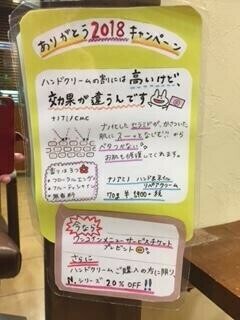 ありがとう2018キャンペーン
ハンドクリームの割には高いけど
効果が違うんです
ナノアミノCMC
ナノ化したセラミドが、かさついた
肌にスーッとなじむ!!から
ベタつかない。
お肌も修復してくれます。
香りは3つ
フローラルエンジ
フルーティシャイ
無香料
ナノアミノ ハンド&ネイル
リペアクリーム
70g
今なら
ワンコインメニューサービスチケット
プレゼント
さらに
ハンドクリームご購入の方に限り
N.シリーズ 20% OFF!!